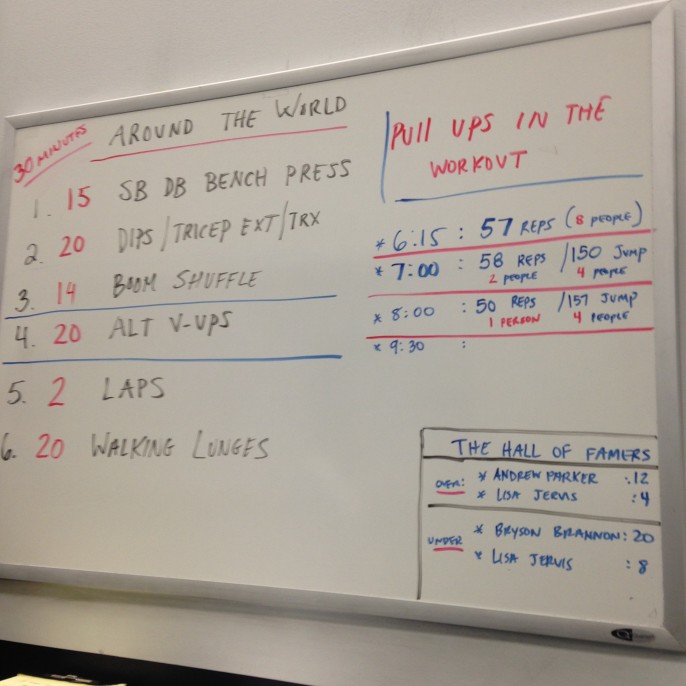 30 MINUTES
AROUND THE WORLD
1. 15 SB DB BENCH PRESS
2. 20 DIPS/TRICEP EXT/TRX
3. 14 BOOM SHUFFLE
4. 20 ALT V-UPS
5. 2 LAPS
6. 20 WALKING LUNGES
PULL UPS IN THE
WORKOUT
* 6:15 : 57 REPS (8 PEOPLE)
* 7:00 : 58 REPS /150 JUMP
2 PEOPLE 4 PEOPLE
* 8:00 : 50 REPS /157 JUMP
1 PERSON 4 PEOPLE
* 9:30 :
THE HALL OF FAMERS
OVER: * ANDREW PARKER :12
* LISA JERVIS :4
UNDER * BRYSON BRANNON: 20
* LISA JERVIS : 8